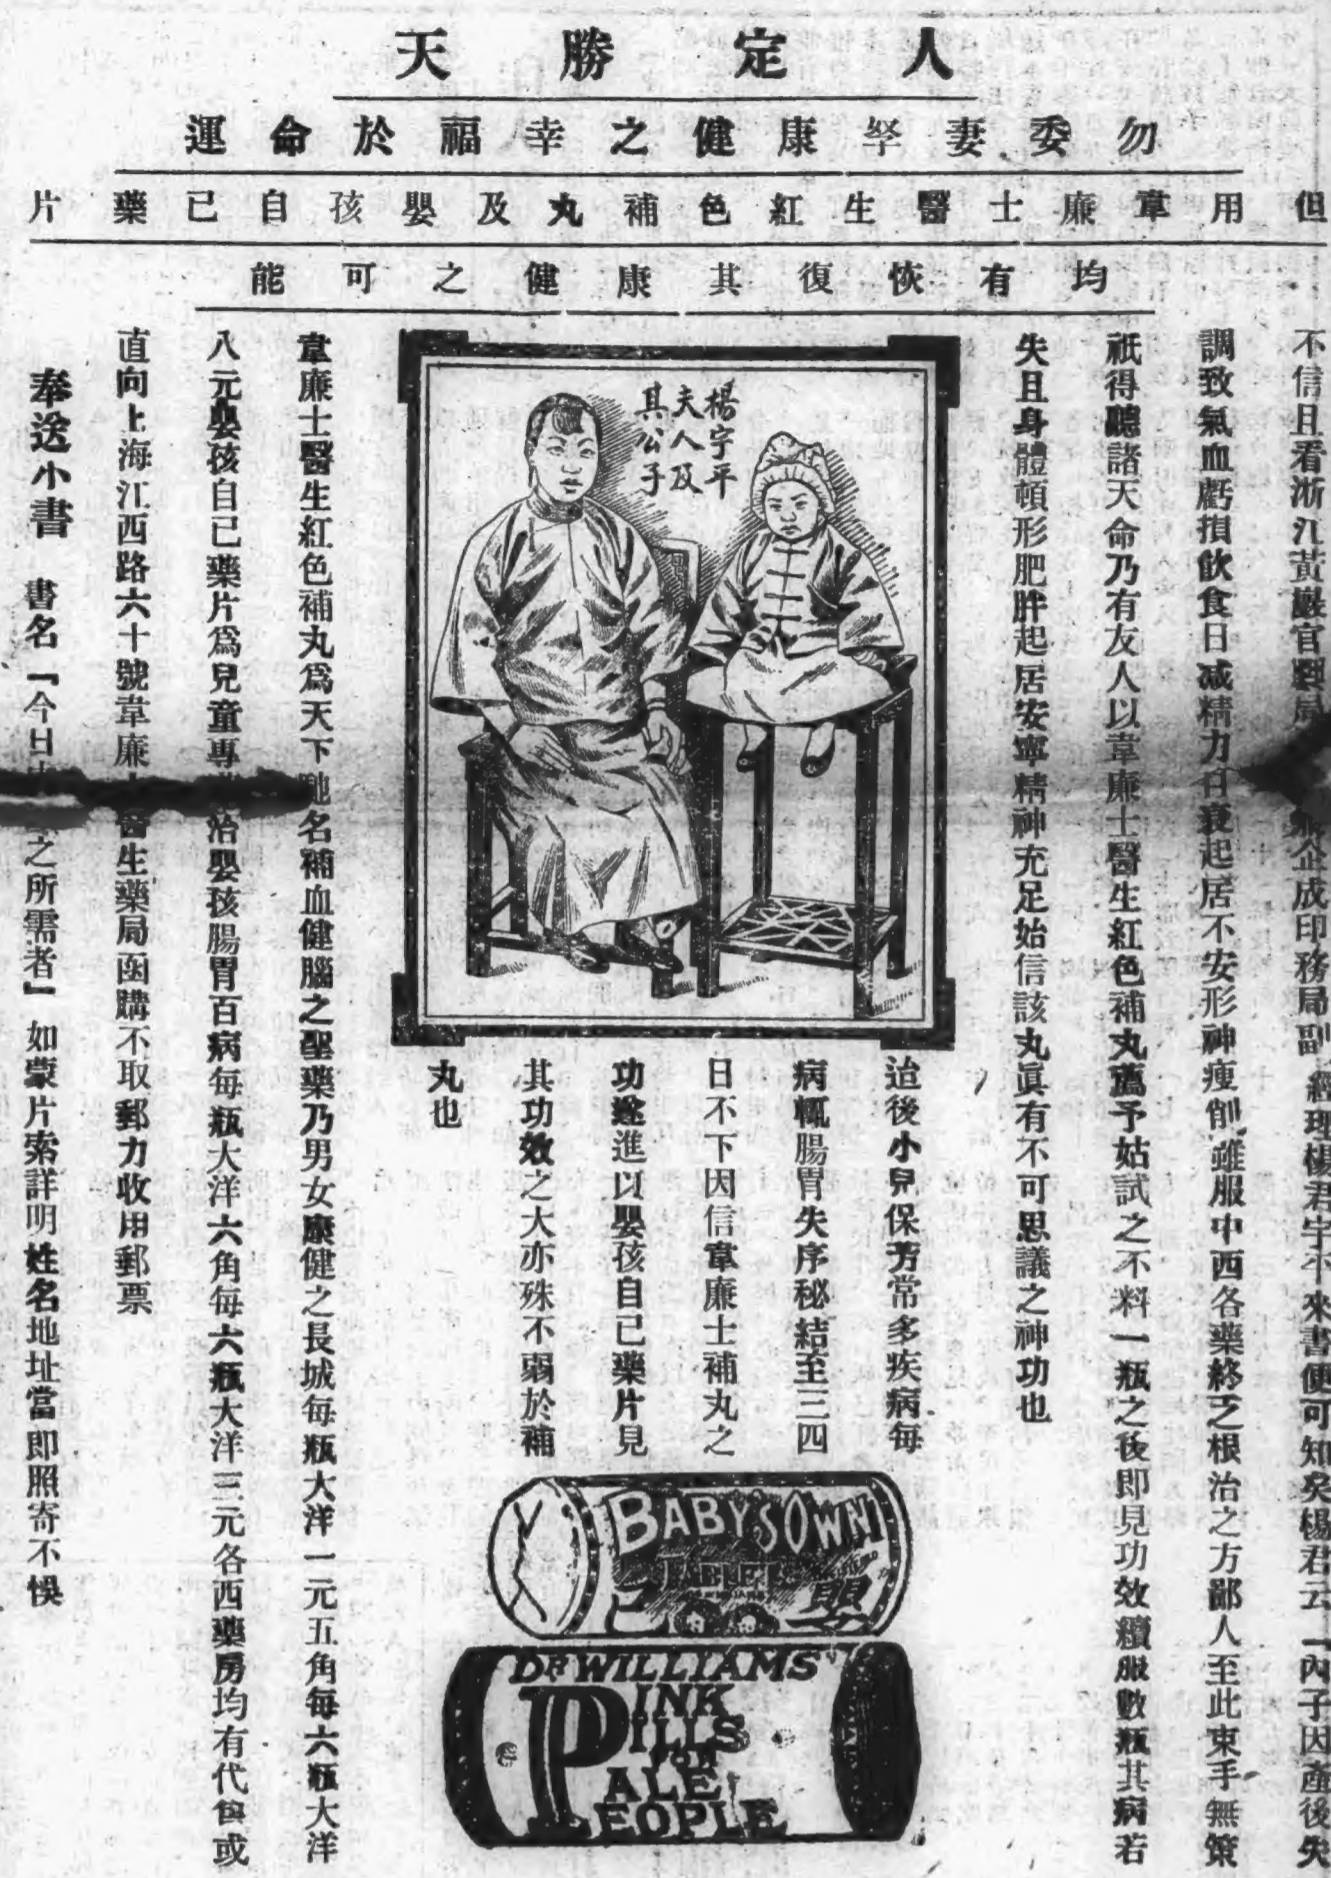 人定勝天
勿委妻孥康健之幸福於命運
但用韋廉士醫生紅色補丸及嬰孩自己藥片
均有恢復其康健之可能
不信且看浙江黃巖官醬局 企成印務局副經理楊君宇平來書便可知矣楊君云「內子因產後失
調致氣血虧損飲食日减精力日衰起居不安形神瘦削雖服中西各藥終乏根治之方鄙人至此束手無策
祇得聽諸天命乃有友人以韋廉士醫生紅色補丸薦予姑試之不料一瓶之後即見功效續服數瓶其病若
失且身體頓形肥胖起居安寧精神充足始信該丸眞有不可思議之神功也
楊宇平
夫人及
其公子
迨後小兒保芳常多疾病每
病輒腸胃失序秘結至三四
日不下因信韋廉士補丸之
功遂進以嬰孩自己藥片見
其功效之大亦殊不弱於補
丸也
BABY'S OWN
TABLETS
己 嬰
DR WILLIAMS
PINK
PILLS
FOR
PALE
PEOPLE
韋廉士醫生紅色補丸爲天下馳名補血健腦之聖藥乃男女康健之長城每瓶大洋一元五角每六瓶大洋
八元嬰孩自己藥片爲兒童專 治嬰孩腸胃百病每瓶大洋六角每六瓶大洋三元各西藥房均有代售或
直向上海江西路六十號韋廉士醫生藥局函購不取郵力收用郵票
奉送小書 書名「今日 之所需者」如蒙片索詳明姓名地址當即照寄不悞